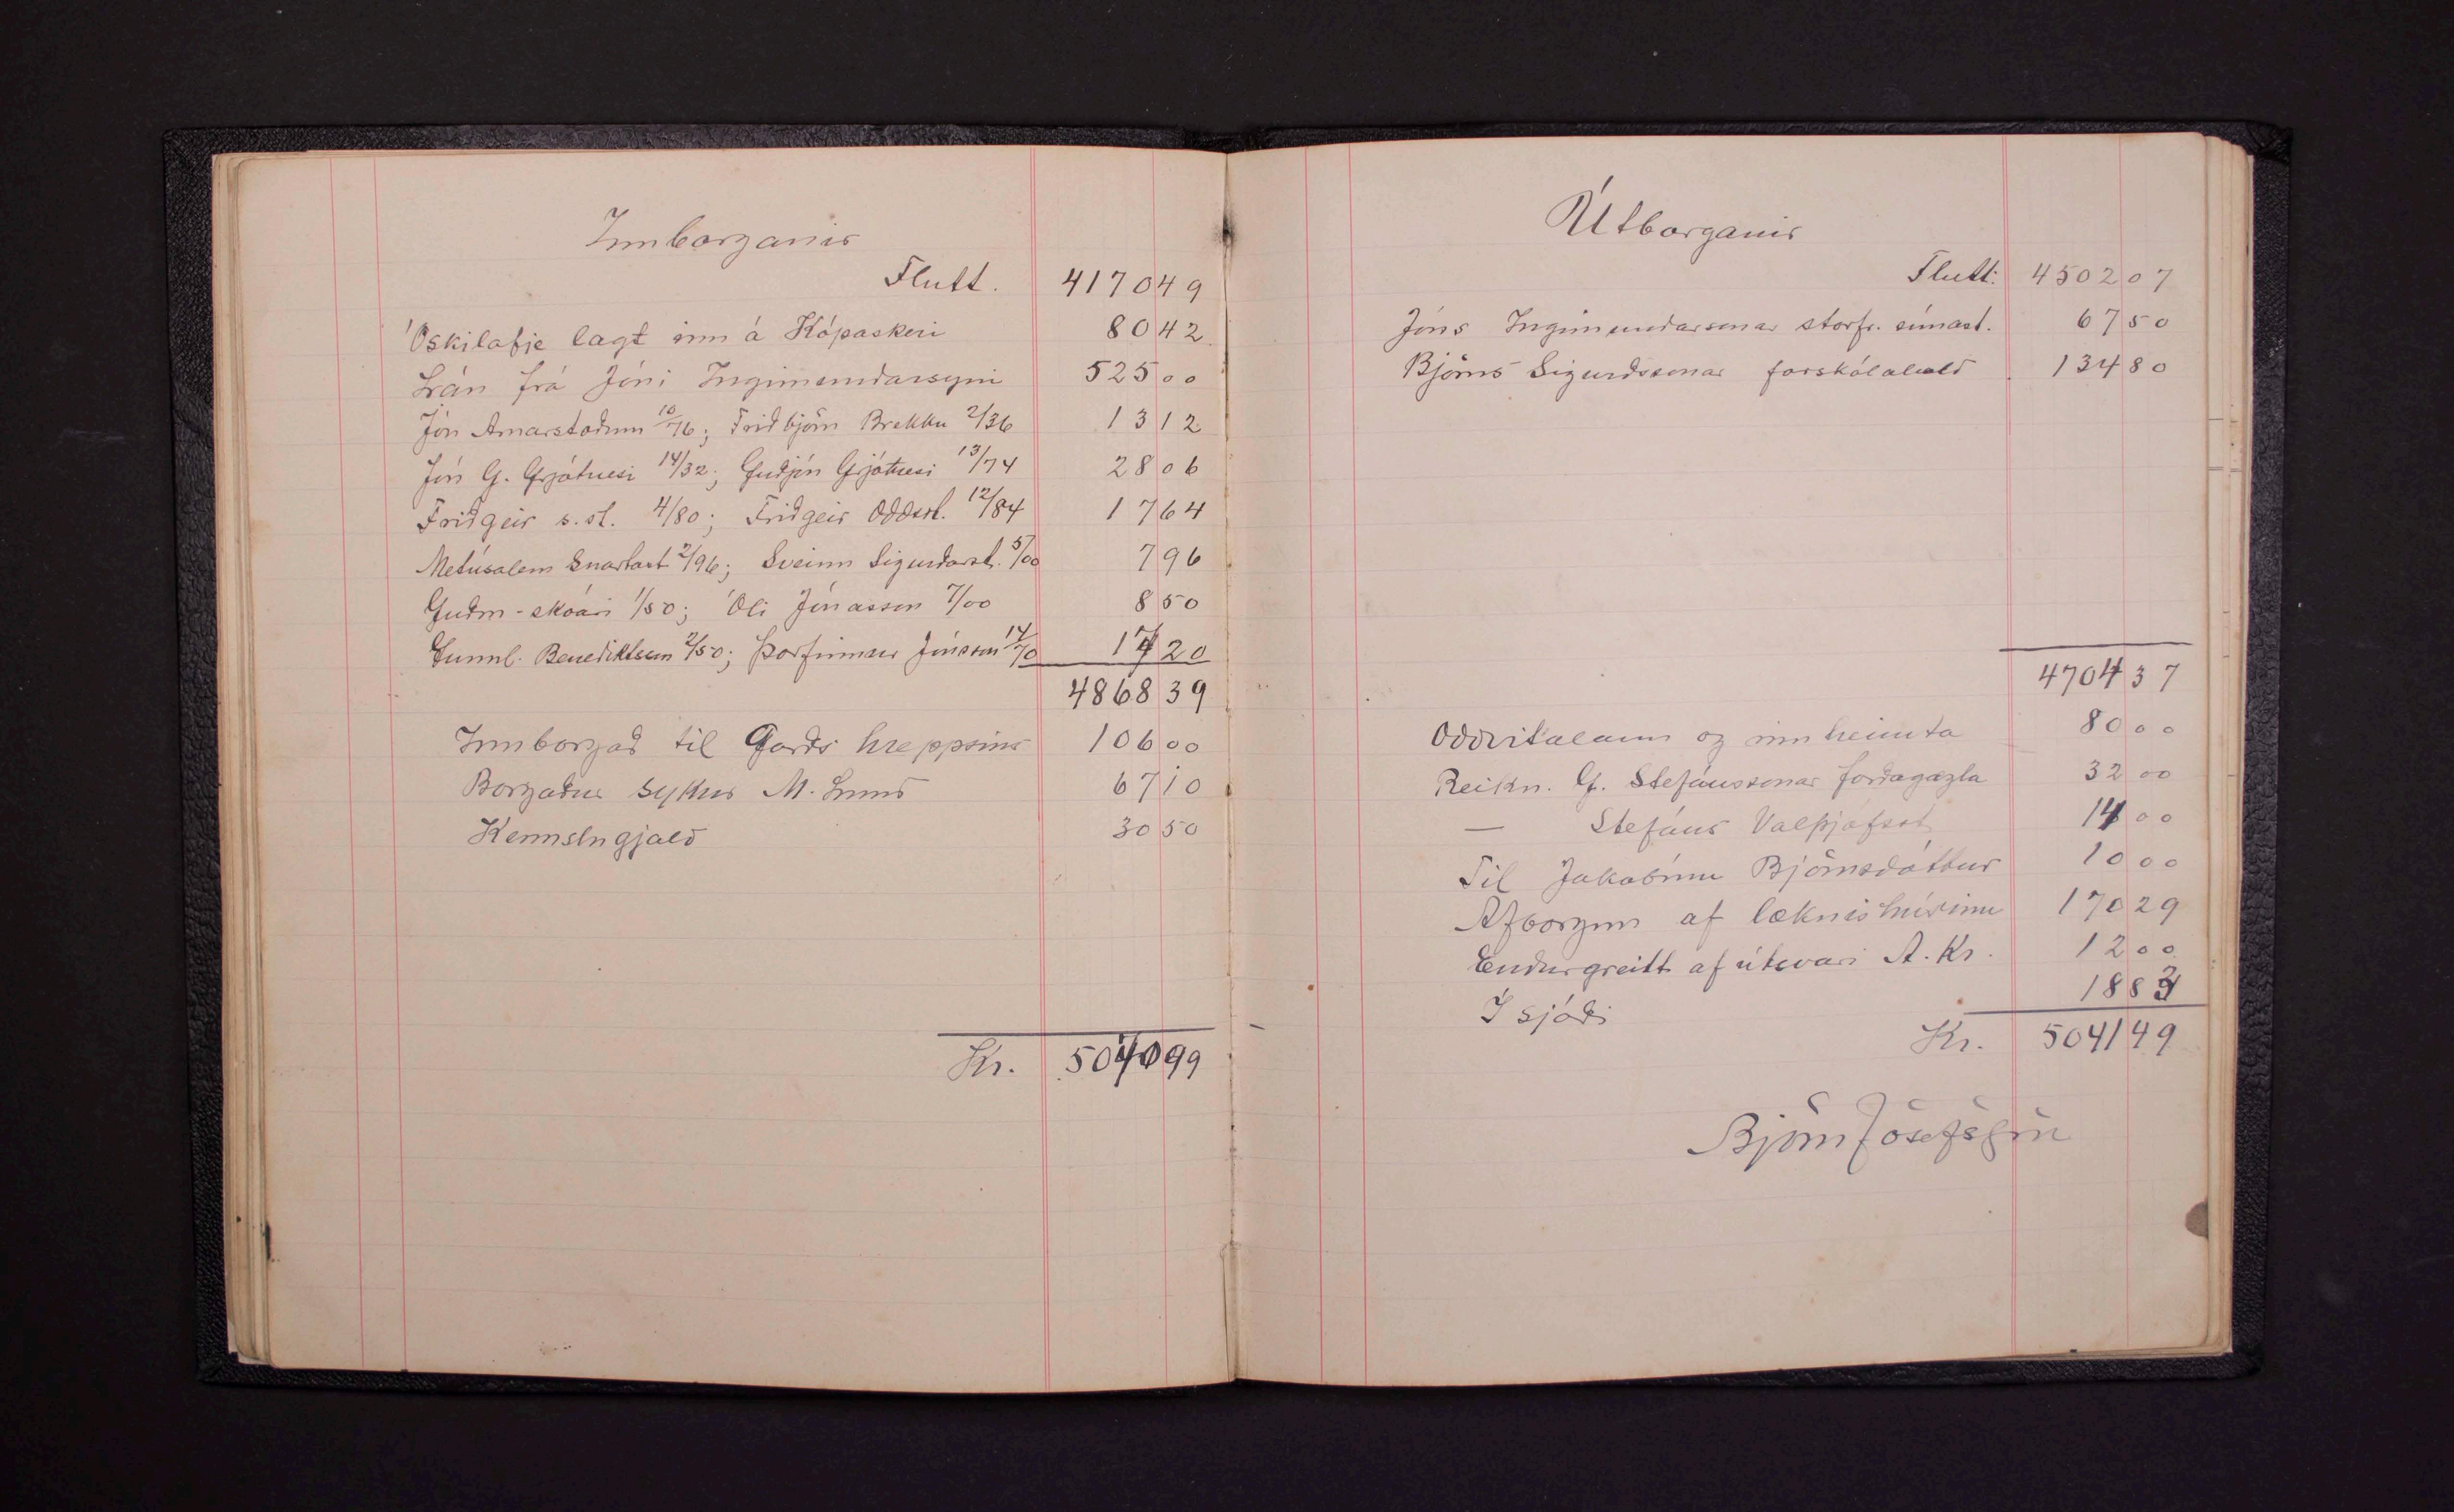 Innborganir
Flutt. 4170 49
Óskilafje lagt inn á Kópaskeri 80 42
Lán frá Jóni Ingimundarsyni 525 00
Jón Arnarstöðum 10/76; Friðbjörn Brekku 2/36 13 12
Jón G. Grjótnesi 14/32; Guðjón Grjótnesi 13/74 28 06
Friðgeir s.st. 4/80; Friðgeir Oddsst. 12/84 17 64
Metúsalem Snartast 2/96; Sveinn Sigurðarst. 5/00 7 96
Guðm - skóari 1/50; Óli Jónasson 7/00 8 50
Gunnl. Benediktsson 2/50; Þorfinnur Jónsson 14/70 17 20
4868 39
Innborgað til Garðs hreppsins 106 00
Borgaður sykur M. Lund 67 10
Kennslugjald 30 50
Kr. 5040 99
Útborganir
Flutt: 4502 07
Jóns Ingimundarsonar storfr. símast. 67 50
Björns Sigurðssonar farskólahald 134 80
4704 37
Oddvitalaun og innheimta 80 00
Reikn. G. Stefánssonar forðagæzla 32 00
— Stefáns Valþjófsst 14 00
Til Jakobínu Björnsdóttur 10 00
Afborgun af læknishúsinu 170 29
Endurgreitt af útsvari A. Kr. 12 00
Í sjóði 18 83
Kr. 5041 49
Björn Jósefsson